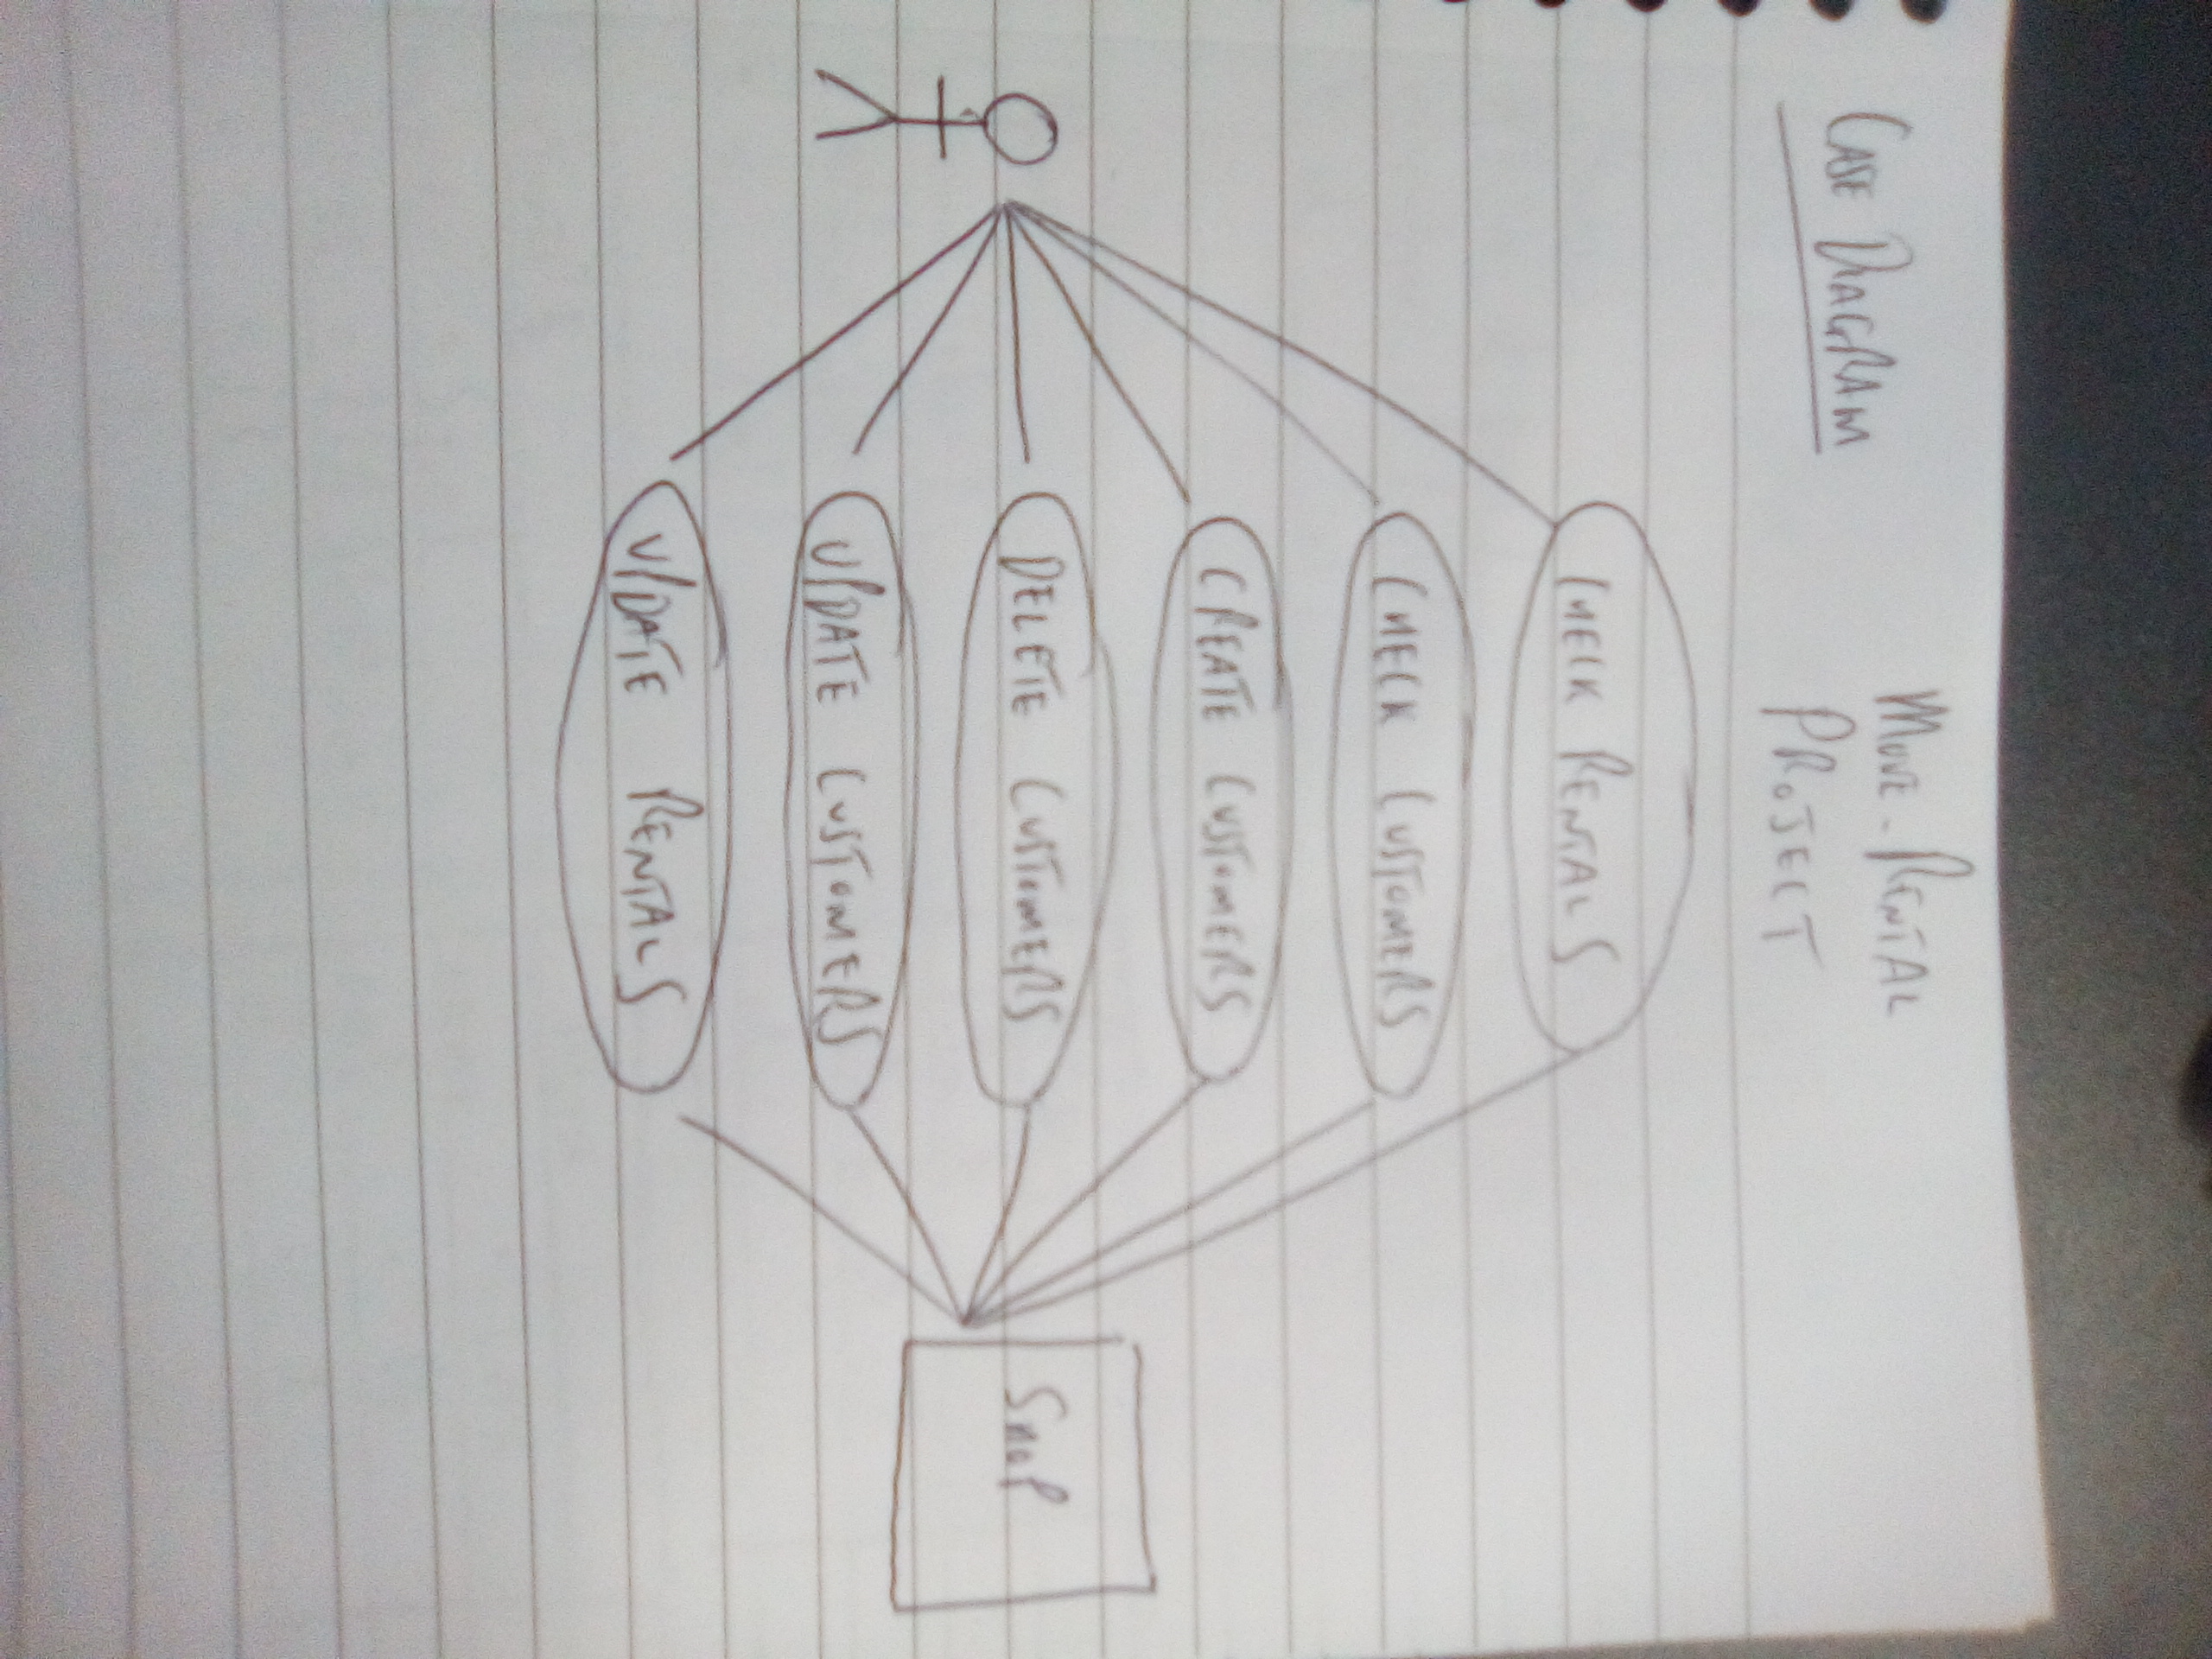 CASE DIAGRAM
MOVIE-RENTAL
PROJECT
CHECK RENTALS
CHECK CUSTOMERS
CREATE CUSTOMERS
DELETE CUSTOMERS
UPDATE CUSTOMERS
UPDATE RENTALS
SHOP